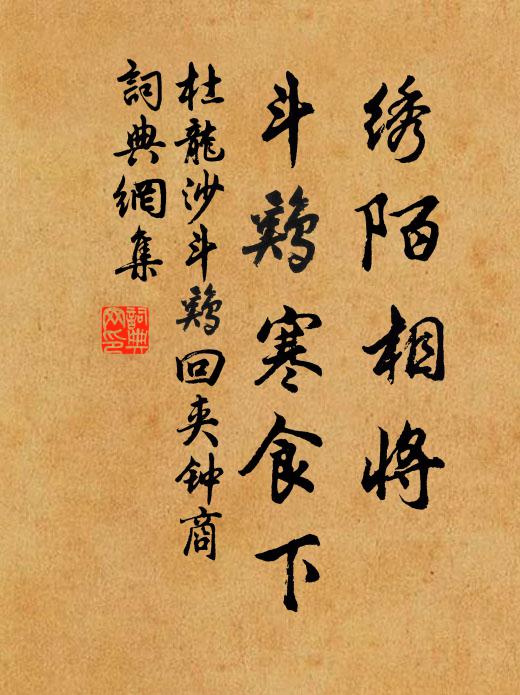 绣陌相将
斗鷄寒食下
杜龍沙斗鷄回夹钟商
詞典網集
詞典網印